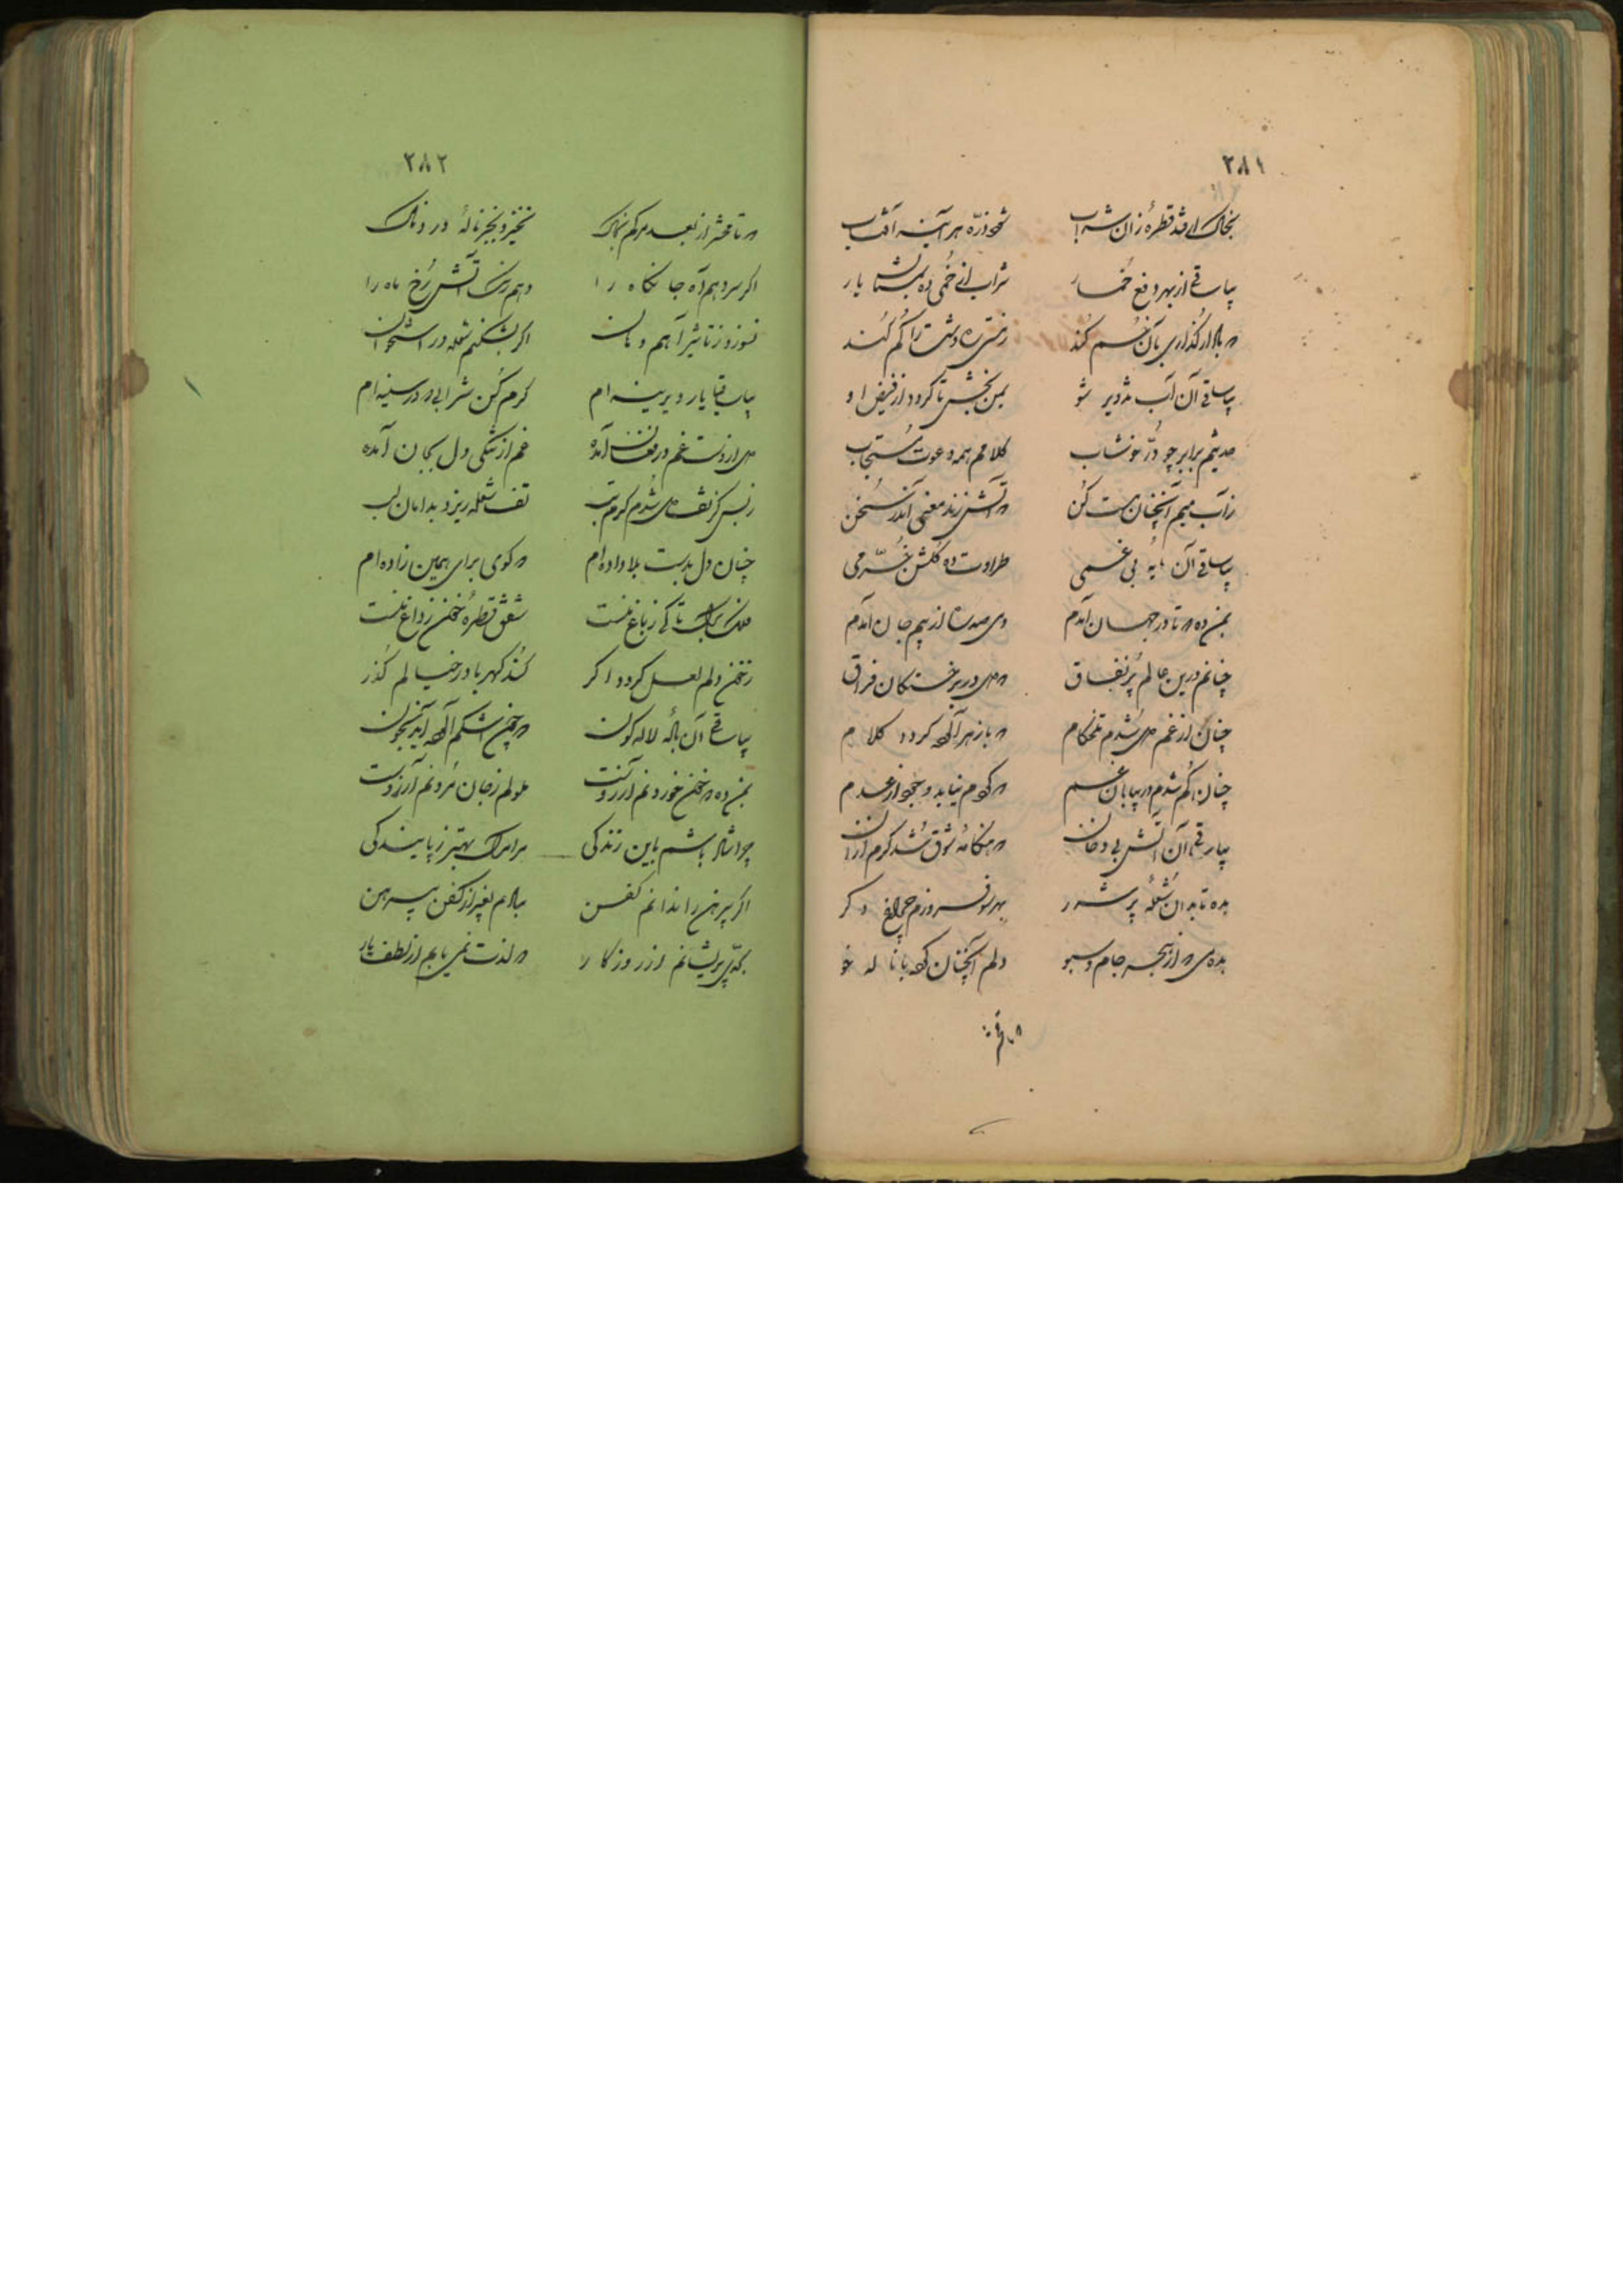 ۲۸۱
بخاک ار فتد قطرهٔ زان شراب شود ذرّه هر آینه آفتاب
بیا ساقی از بهر دفع خمار شراب
بلا را گذاری بآن خُم کند ز مستی ره دشت را گم کند
بیا ساقی آن آب بمن بخش تا گردد از فیض او
برابر چو دُرّ خوشاب کلامم همه دعوت مُستجاب
ز آب میم آنچنان مست کُن که آتش زند معنی اندر سُخن
بیا ساقی آن مایه بی غمی طراوت ده گلشن خُرّمی
بمن ده که تا در جهان آمدم
چنانم درین عالم پُر نفاق فراق
چنان از غم می شُدم تلخکام که با زهر آلوده گردد کلام
چنان گُم شدم در بیابان غم که گردم نیابد وجود از عدم
بیا ساقی آن آتش بی دخان که هنگامهٔ شوق شُد گرم از آن
بده تا بدان شُعلهٔ پر شرر بهر سو فروزم چراغ دگر
بده می که از هجر جام و سبو دلم آنچنان که با ناله خو
که باقی
۲۸۲
که تا محشر از بعد مرگم ز خاک نخیزد بجز نالهٔ دردناک
اگر سر دهم آه جانکاه را دهم رنگ آتش رُخ ماه را
بسوزد ز تاثیر آهم دهان اگر بشکنم شعله در استخوان
بیا ساقیا یار دیرینه ام کرم کُن شرابی که در سینه ام
دل از دست غم در فغان آمده غم از تنگی دل بجان آمده
ز بس کز تف می شُدم گرم تب تف شعله ریزد بدامان لب
چنان دل بدست بلا داده ام که گوئی برای همین زاده ام
فلک برگ تاکی ز باغ منست شفق قطرهٔ خون ز داغ منست
ز خون دلم لعل گردد اگر کُند کهربا در خیالم گُذر
بیا ساقی آن بادهٔ لاله گون که چون اشکم
بمن ده که خون خوردنم آرزوست ملولم ز جان مُردنم آرزوست
چرا شاد باشم باین زندگی مرا مرگ بهتر ز پایندگی
اگر پیرهن را ندانم کفن مبادم بغیر از کفن پیرهن
بحدّی پریشانم از روزگار که لذت نمی یابم از لطف یار